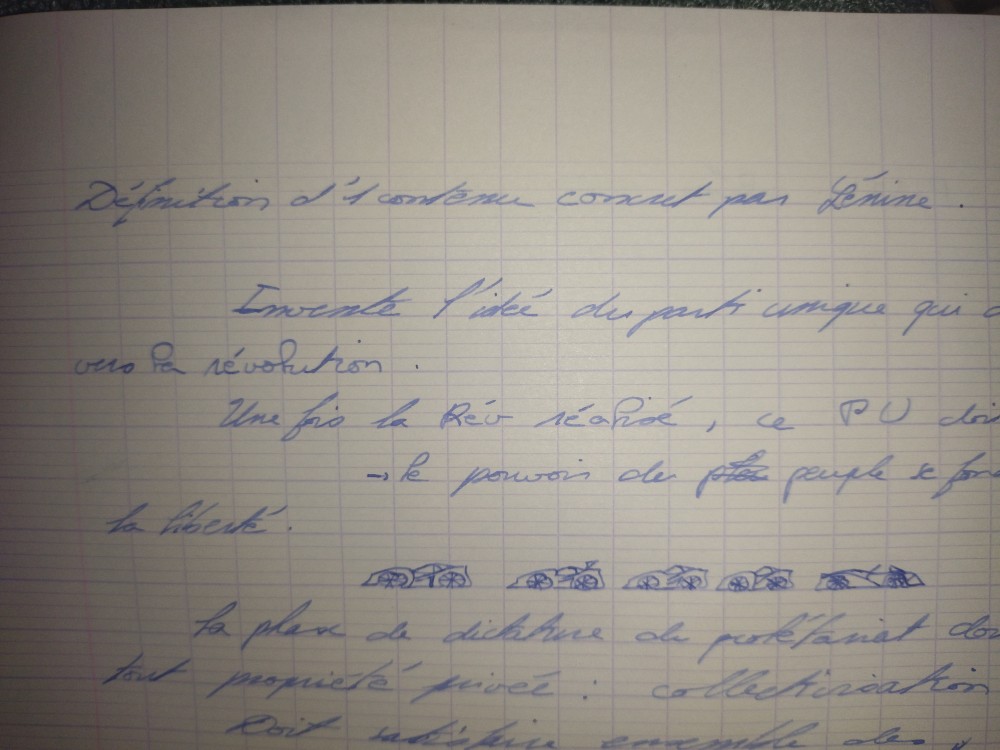 Définition d'1 contenu concret par Lénine.
Invente l'idée du parti unique qui
vers la révolution.
Une fois la Rév réalisé, ce PU doi
→ le pouvoir du peuple se fon
la liberté.
la phase de dictature du prolétariat do
tout propriété privée : collectivisation
Doit satisfaire ensemble des